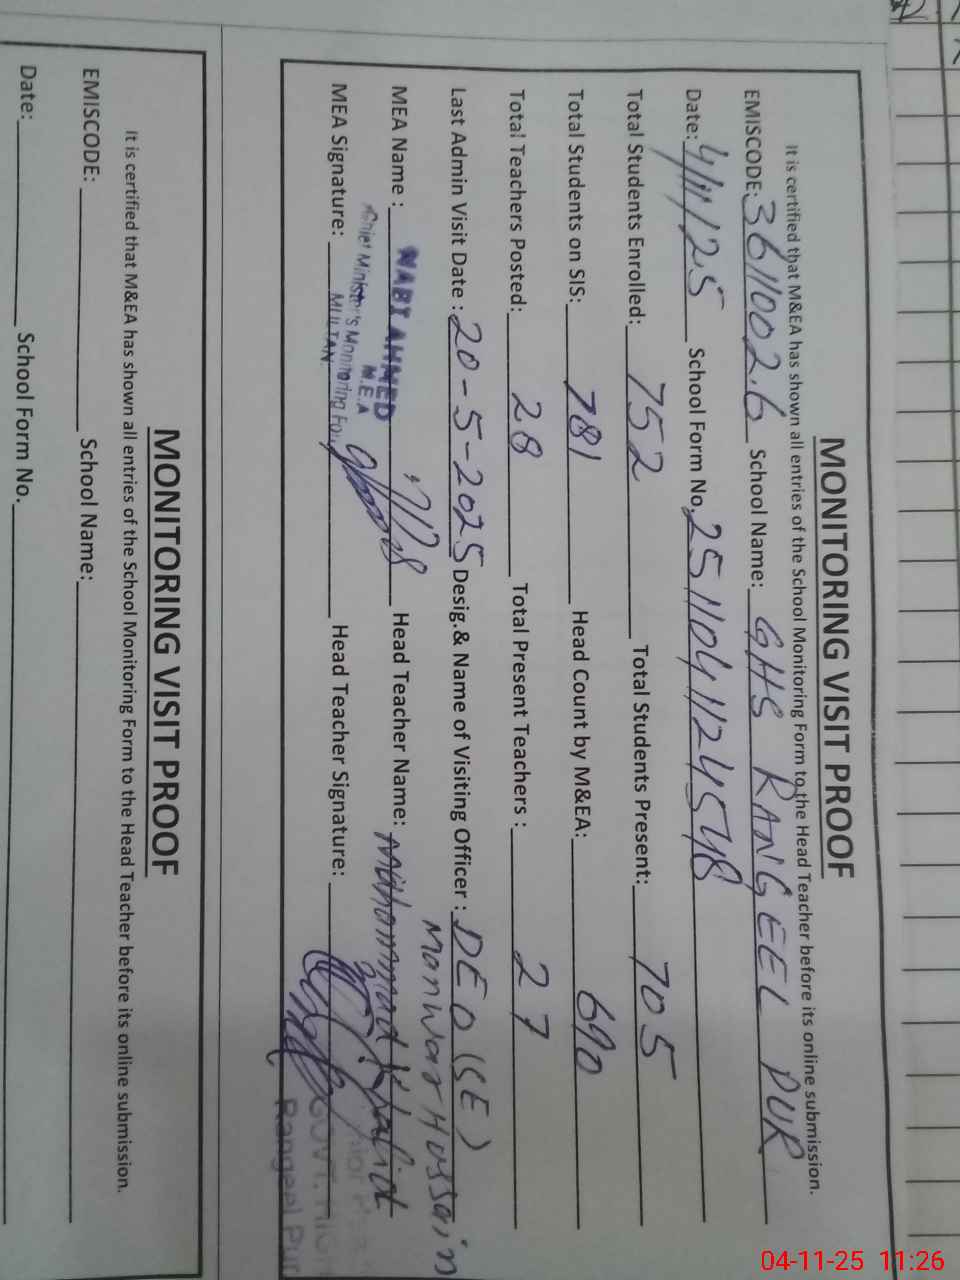 MONITORING VISIT PROOF
It is certified that M&EA has shown all entries of the School Monitoring Form to the Head Teacher before its online submission.
EMISCODE: 36110026 School Name: GHS RANGEEL PUR
Date: 4/11/25 School Form No. 25110411245718
Total Students Enrolled: 752 Total Students Present: 705
Total Students on SIS: 781 Head Count by M&EA: 690
Total Teachers Posted: 28 Total Present Teachers : 27
Last Admin Visit Date : 20-5-2025 Desig.& Name of Visiting Officer : DEO (SE)
Manwar Hussain
MEA Name : NABI AHMED Head Teacher Name: Mohammad Khalid
M.E.A
Chief Minister's Monitoring
MULTAN
MEA Signature: Head Teacher Signature:
GOVT. HIGH
Rangeel Pur
MONITORING VISIT PROOF
It is certified that M&EA has shown all entries of the School Monitoring Form to the Head Teacher before its online submission.
EMISCODE: School Name:
Date: School Form No.
04-11-25 11:26